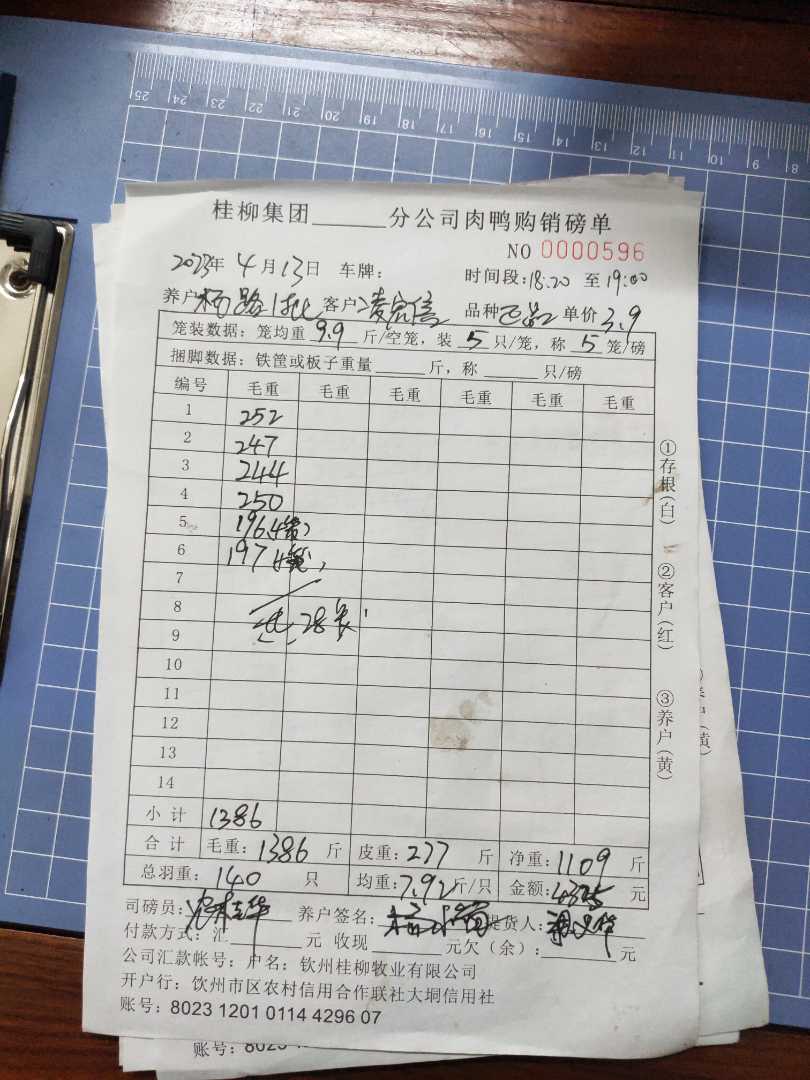 25 24 23 22 21 20 19 18 17 16 15 14 13 12 11 10 9 8
桂柳集团______分公司肉鸭购销磅单
NO 0000596
2023年 4 月 13 日 车牌: 时间段:18:20 至 19:00
养户 杨路1批 客户 凌宗信 品种 单价 3.9
笼装数据: 笼均重 9.9 斤/空笼, 装 5 只/笼, 称 5 笼/磅
捆脚数据: 铁筐或板子重量______斤, 称______只/磅
编号 毛重 毛重 毛重 毛重 毛重 毛重
1 252
2 247
3 244
4 250
5 196(4笼)
6 197(4笼)
7
8 共28笼
9
10
11
12
13
14
小计 1386
合计 毛重: 1386 斤 皮重: 277 斤 净重: 1109 斤
总羽重: 140 只 均重: 7.92 斤/只 金额: 4325 元
司磅员: 养户签名: 提货人:
付款方式: 汇______元 收现______元欠(余):______元
公司汇款帐号: 户名: 钦州桂柳牧业有限公司
开户行: 钦州市区农村信用合作联社大垌信用社
账号: 8023 1201 0114 4296 07
①存根(白)
②客户(红)
③养户(黄)
账号: 8023